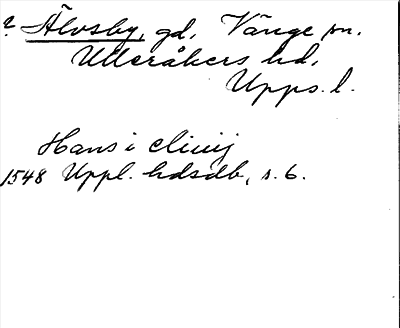 ? Älvsby, gd, Vänge sn.
Ulleråkers hd,
Upps. l.
Hans i
1548 Uppl. hdsdb, s. 6.